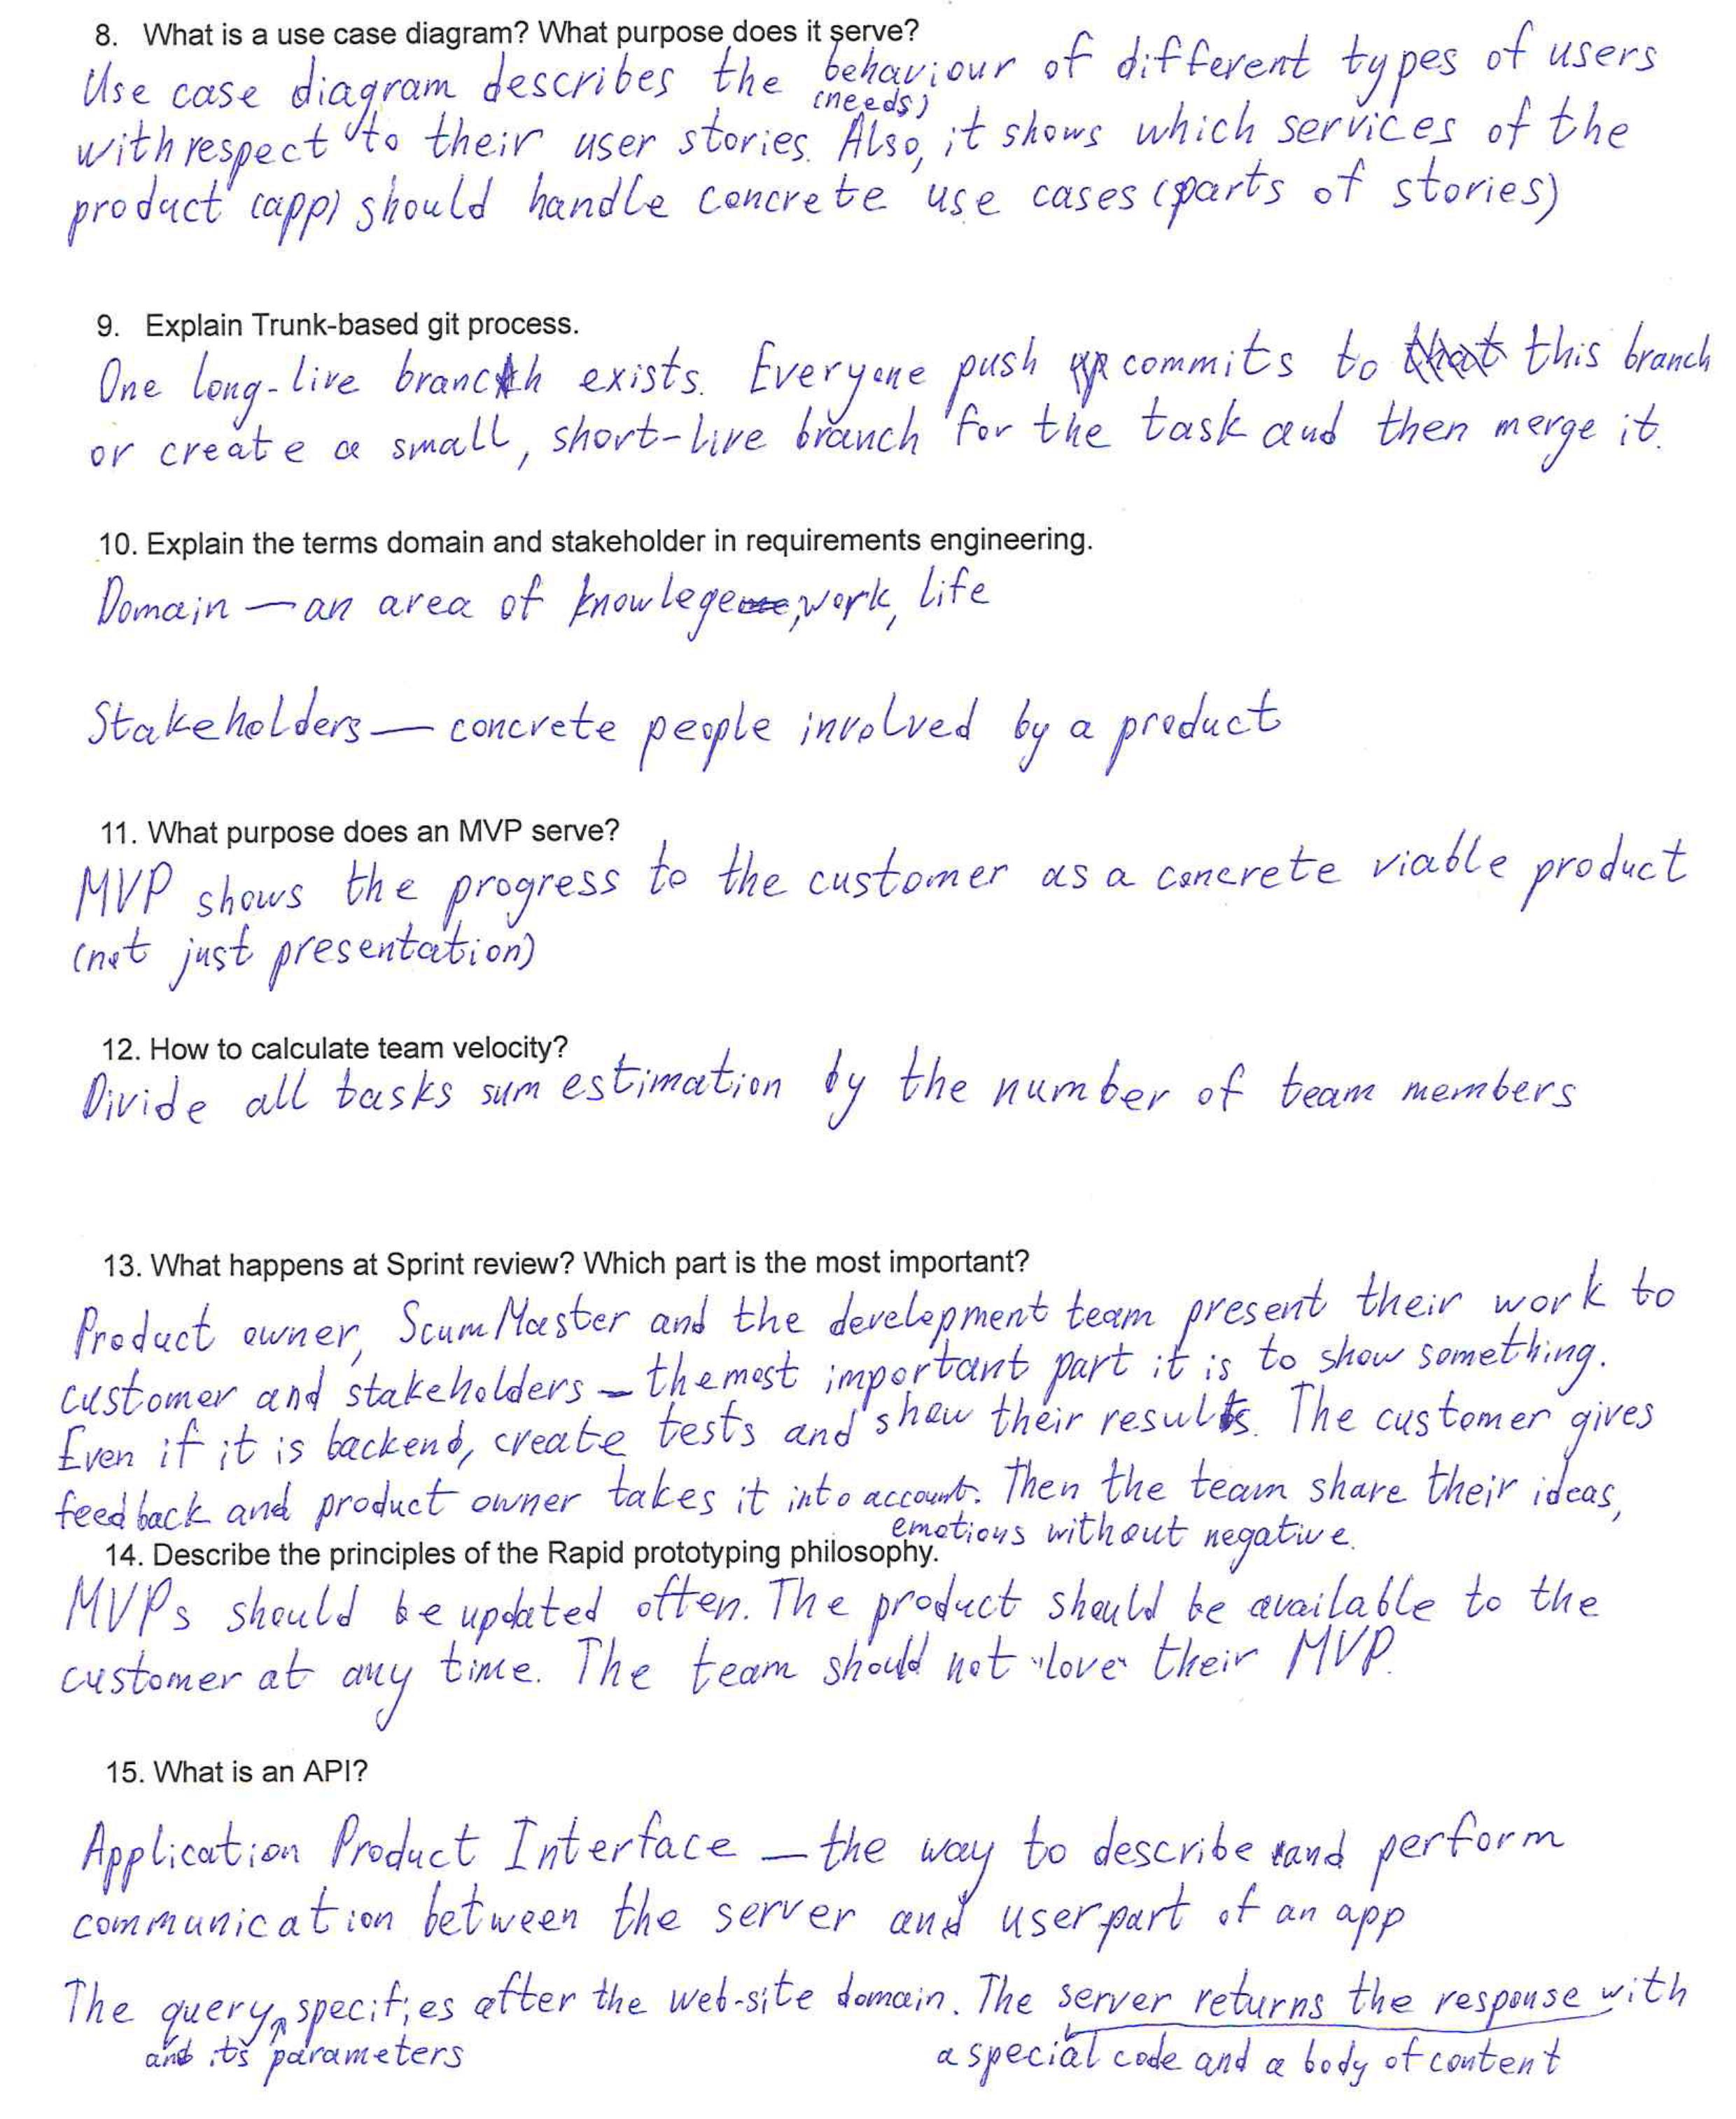 8. What is a use case diagram? What purpose does it serve?
Use case diagram describes the behaviour of different types of users
(needs)
with respect to their user stories. Also, it shows which services of the
product (app) should handle concrete use cases (parts of stories)
9. Explain Trunk-based git process.
One long-live branch exists. Everyone push commits to this branch
or create a small, short-live branch for the task and then merge it.
10. Explain the terms domain and stakeholder in requirements engineering.
Domain — an area of knowlege, work, life
Stakeholders — concrete people involved by a product
11. What purpose does an MVP serve?
MVP shows the progress to the customer as a concrete viable product
(not just presentation)
12. How to calculate team velocity?
Divide all tasks sum estimation by the number of team members
13. What happens at Sprint review? Which part is the most important?
Product owner, Scum Master and the development team present their work to
customer and stakeholders — the most important part it is to show something.
Even if it is backend, create tests and show their results. The customer gives
feedback and product owner takes it into account. Then the team share their ideas,
emotions without negative.
14. Describe the principles of the Rapid prototyping philosophy.
MVPs should be updated often. The product should be available to the
customer at any time. The team should not "love" their MVP.
15. What is an API?
Application Product Interface — the way to describe and perform
communication between the server and user part of an app
The query specifies after the web-site domain. The server returns the response with
and it's parameters a special code and a body of content